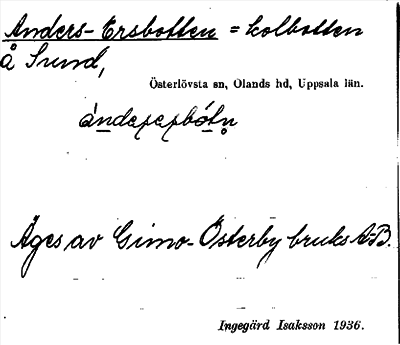 Anders-Ersbotten = kolbotten
å Sund,
Österlövsta sn, Olands hd, Uppsala län.
Äges av Gimo-Österby bruks A-B.
Ingegärd Isaksson 1936.